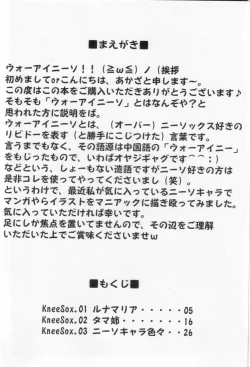 ■まえがき■
ウォーアイニーソ！！（≧ω≦）ノ（挨拶
初めましてorこんにちは、あかざと申します～。
この度はこの本をご購入いただきありがとうございます♪
そもそも「ウォーアイニーソ」とはなんぞや？と
思われた方に説明をば。
ウォーアイニーソとは、（オーバー）ニーソックス好きの
リビドーを表す（と勝手にこじつけた）言葉です。
言うまでもなく、その語源は中国語の「ウォーアイニー」
をもじったもので、いわばオヤジギャグです＾＾：）
などという、しょーもない造語ですがニーソ好きの方は
是非コレを使ってやってくださいまし（笑）。
というわけで、最近私が気に入っているニーソキャラで
マンガやらイラストをマニアックに描き殴ってみました。
気に入っていただければ幸いです。
足にしか焦点を置いてませんので、その辺をご理解
いただいた上でご賞味くださいませω
■もくじ■
KneeSox.01 ルナマリア・・・・・05
KneeSox.02 タマ姉・・・・・・・16
KneeSox.03 ニーソキャラ色々・・26